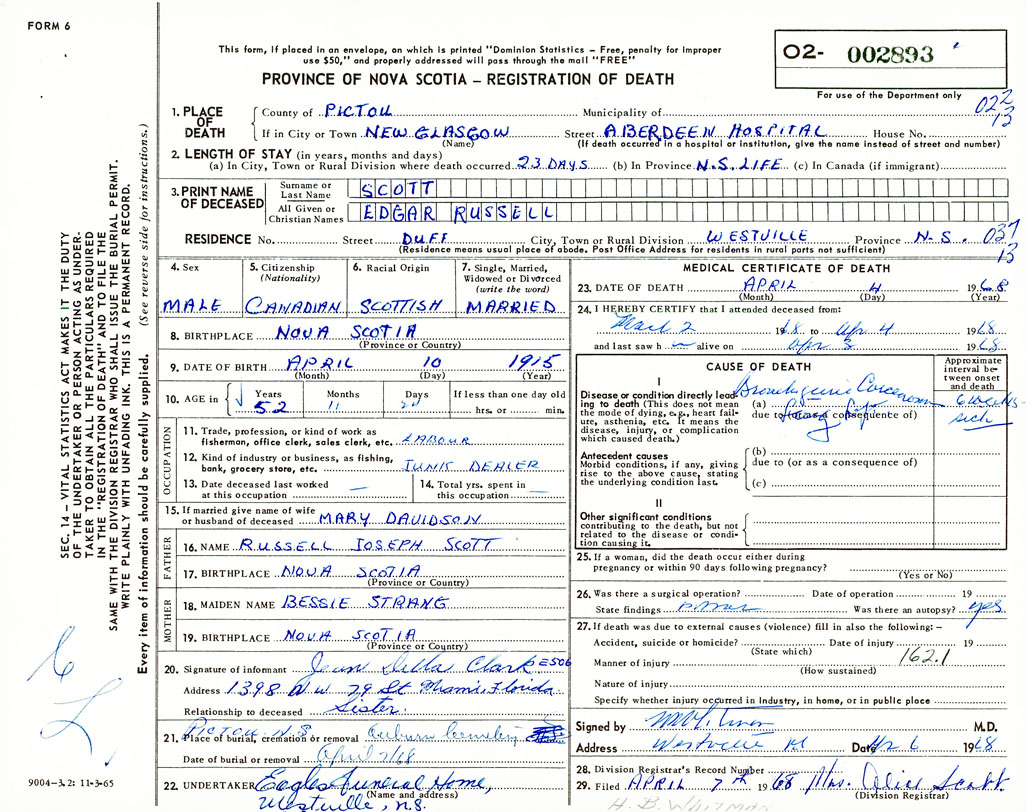 FORM 6
This form, if placed in an envelope, on which is printed "Dominion Statistics – Free, penalty for improper
use $50," and properly addressed will pass through the mail "FREE"
PROVINCE OF NOVA SCOTIA – REGISTRATION OF DEATH
O2- 002893
For use of the Department only
022
13
1. PLACE OF DEATH
County of PICTOU Municipality of
If in City or Town NEW GLASGOW Street ABERDEEN HOSPITAL House No.
(Name) (If death occurred in a hospital or institution, give the name instead of street and number)
2. LENGTH OF STAY (in years, months and days)
(a) In City, Town or Rural Division where death occurred 23 DAYS (b) In Province N.S. LIFE (c) In Canada (if immigrant)
3. PRINT NAME OF DECEASED
Surname or Last Name SCOTT
All Given or Christian Names EDGAR RUSSELL
RESIDENCE No. Street DUFF City, Town or Rural Division WESTVILLE Province N.S. 037
13
(Residence means usual place of abode. Post Office Address for residents in rural parts not sufficient)
4. Sex
MALE
5. Citizenship
(Nationality)
CANADIAN
6. Racial Origin
SCOTTISH
7. Single, Married,
Widowed or Divorced
(write the word)
MARRIED
8. BIRTHPLACE NOVA SCOTIA
(Province or Country)
9. DATE OF BIRTH APRIL 10 1915
(Month) (Day) (Year)
10. AGE in
Years Months Days If less than one day old
52 11 24 hrs. or min.
OCCUPATION
11. Trade, profession, or kind of work as
fisherman, office clerk, sales clerk, etc. LABOUR
12. Kind of industry or business, as fishing,
bank, grocery store, etc. JUNK DEALER
13. Date deceased last worked
at this occupation —
14. Total yrs. spent in
this occupation —
15. If married give name of wife
or husband of deceased MARY DAVIDSON
FATHER
16. NAME RUSSELL JOSEPH SCOTT
17. BIRTHPLACE NOVA SCOTIA
(Province or Country)
MOTHER
18. MAIDEN NAME BESSIE STRANG
19. BIRTHPLACE NOVA SCOTIA
(Province or Country)
20. Signature of informant Jean Della Clark E506
Address 1398 N.W. 79 St Miami, Florida
Relationship to deceased Sister
PICTOU N.S
21. Place of burial, cremation or removal Auburn Cemetery
Date of burial or removal April 7/68
22. UNDERTAKER Eagles Funeral Home,
(Name and address)
Westville, N.S.
MEDICAL CERTIFICATE OF DEATH
23. DATE OF DEATH APRIL 4 1968
(Month) (Day) (Year)
24. I HEREBY CERTIFY that I attended deceased from:
Mar 2 1968 to Apr 4 1968
and last saw h alive on Apr 3 1968
CAUSE OF DEATH
Approximate
interval be-
tween onset
and death
I
Disease or condition directly lead-
ing to death (This does not mean
the mode of dying, e.g., heart fail-
ure, asthenia, etc. It means the
disease, injury, or complication
which caused death.)
(a) Bronchogenic Carcinoma 6 weeks
due to (or as a consequence of)
Antecedent causes
Morbid conditions, if any, giving
rise to the above cause, stating
the underlying condition last.
(b)
due to (or as a consequence of)
(c)
II
Other significant conditions
contributing to the death, but not
related to the disease or condi-
tion causing it.
25. If a woman, did the death occur either during
pregnancy or within 90 days following pregnancy?
(Yes or No)
26. Was there a surgical operation? Date of operation 19
State findings Was there an autopsy? yes
27. If death was due to external causes (violence) fill in also the following: –
Accident, suicide or homicide? Date of injury 19
(State which) 162.1
Manner of injury
(How sustained)
Nature of injury
Specify whether injury occurred in Industry, in home, or in public place
Signed by M.D.
Address Westville Date Apr 6 1968
28. Division Registrar's Record Number
29. Filed APRIL 7th 1968 Mrs. Alice Scott
(Division Registrar)
SEC. 14 – VITAL STATISTICS ACT MAKES IT THE DUTY
OF THE UNDERTAKER OR PERSON ACTING AS UNDER-
TAKER TO OBTAIN ALL THE PARTICULARS REQUIRED
IN THE "REGISTRATION OF DEATH" AND TO FILE THE
SAME WITH THE DIVISION REGISTRAR WHO SHALL ISSUE THE BURIAL PERMIT.
WRITE PLAINLY WITH UNFADING INK. THIS IS A PERMANENT RECORD.
Every item of information should be carefully supplied. (See reverse side for instructions.)
9004-3.2: 11-3-65